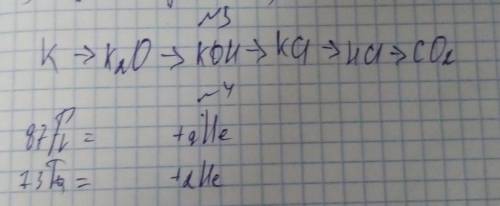 №3
K → K₂O → KOH → KCl → HCl → CO₂
№4
87Fr = +2He
73Ta = +2He